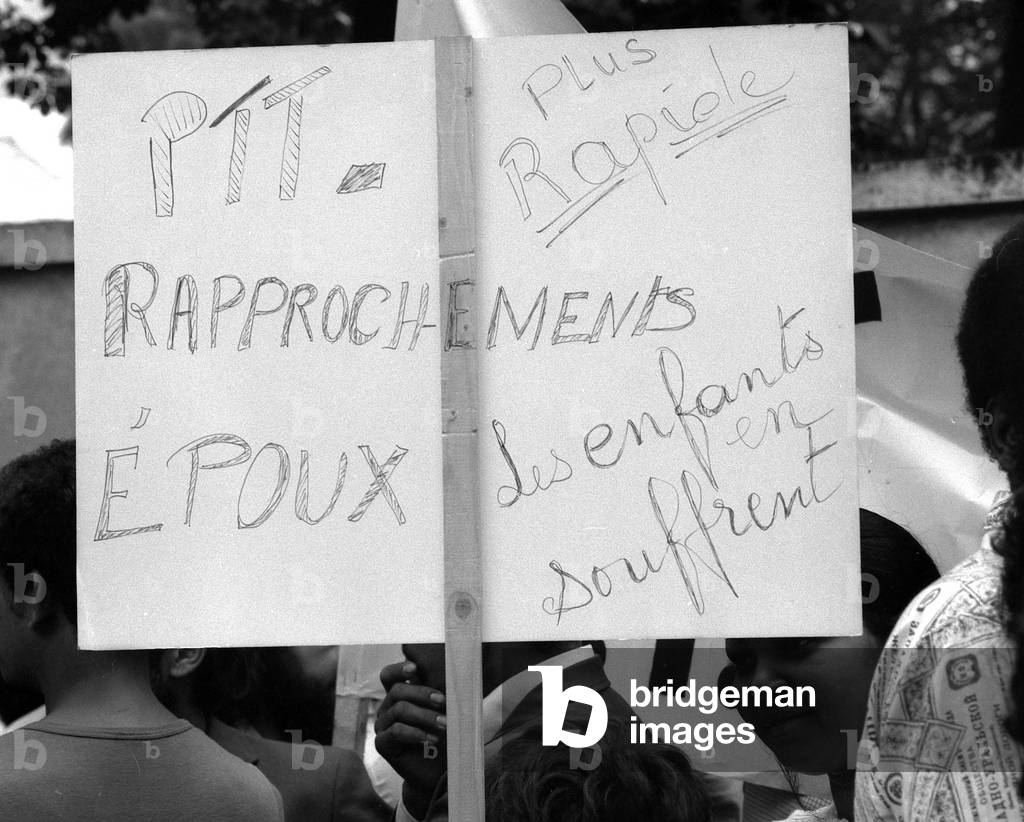 PTT.
PLUS
Rapide
RAPPROCHEMENTS
ÉPOUX
Les enfants
en
souffrent
bridgeman
images